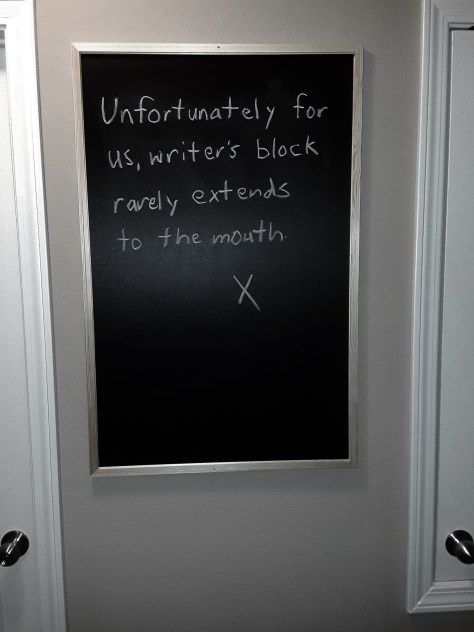 Unfortunately for
us, writer's block
rarely extends
to the mouth.
X